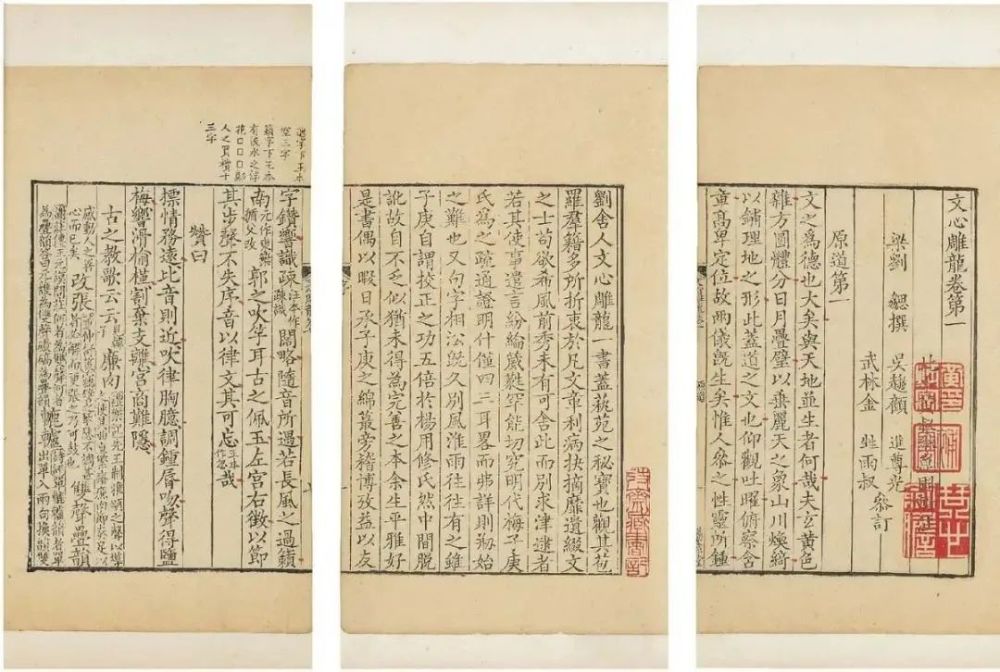 文心雕龍卷第一
梁劉 勰撰 吳趨顧 進尊光
武林金 甡雨叔 叅訂
原道第一
文之爲德也大矣與天地並生者何哉夫玄黃色
雜方圓體分日月疊璧以垂麗天之象山川煥綺
以鋪理地之形此蓋道之文也仰觀吐曜俯察含
章高卑定位故兩儀旣生矣惟人叅之性靈所鍾
劉舍人文心雕龍一書蓋藝苑之秘寶也觀其苞
羅羣籍多所折衷於凡文章利病抉摘靡遺綴文
之士苟欲希風前秀未有可舍此而別求津逮者
若其使事遣言紛綸葳蕤罕能切究明代梅子庚
氏爲之疏通證明什僅四三耳畧而弗詳則剏始
之難也又句字相沿旣久別風淮雨往往有之雖
子庚自謂校正之功五倍於楊用修氏然中間脫
訛故自不乏似猶未得爲完善之本余生平雅好
是書偶以暇日承子庚之綿蕞旁稽博攷益以友
字鑽響識疎汪本作疎識闊略隨音所遇若長風之過籟
南元作東葉循父改郭之吹竽耳古之佩玉左宮右徵以節
其步聲不失序音以律文其可忘王本作忽哉
贊曰
標情務遠比音則近吹律胸臆調鍾脣吻聲得鹽
梅響滑榆槿割棄支離宮商難隱
古之教歌云云
廉肉
改張
雙聲疊韻